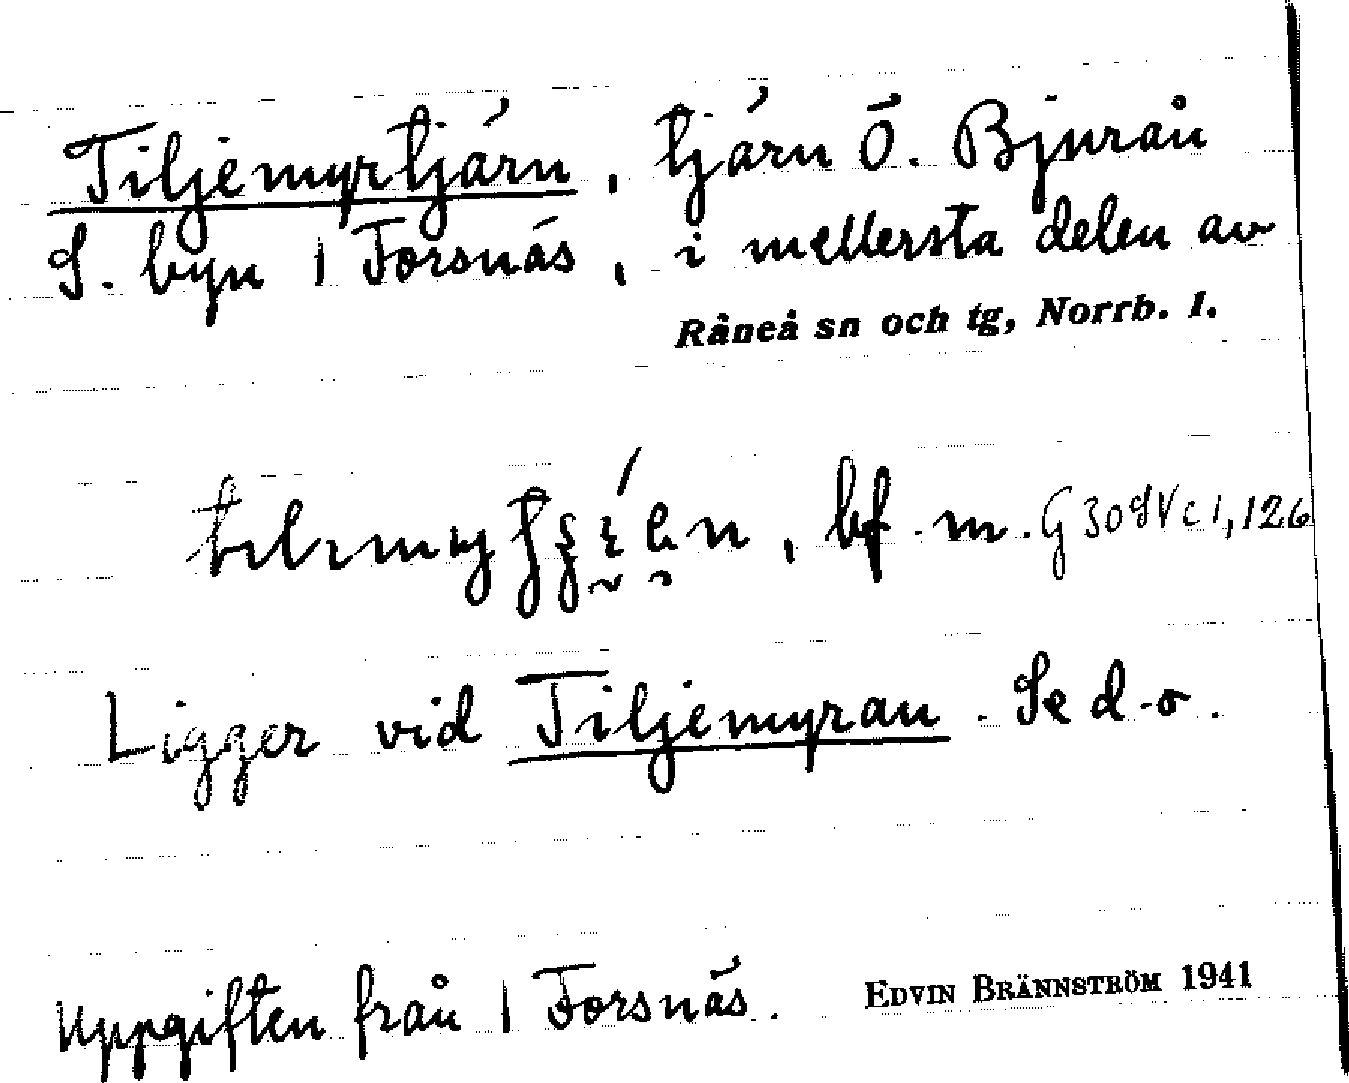 Tiljemyrtjärn, tjärn Ö. Bjurån
S. byn 1 Forsnäs, i mellersta delen av
Råneå sn och tg, Norrb. l.
bf. m. G
Ligger vid Tiljemyran. Se d-o.
Uppgiften från 1 Forsnäs. EDVIN BRÄNNSTRÖM 1941